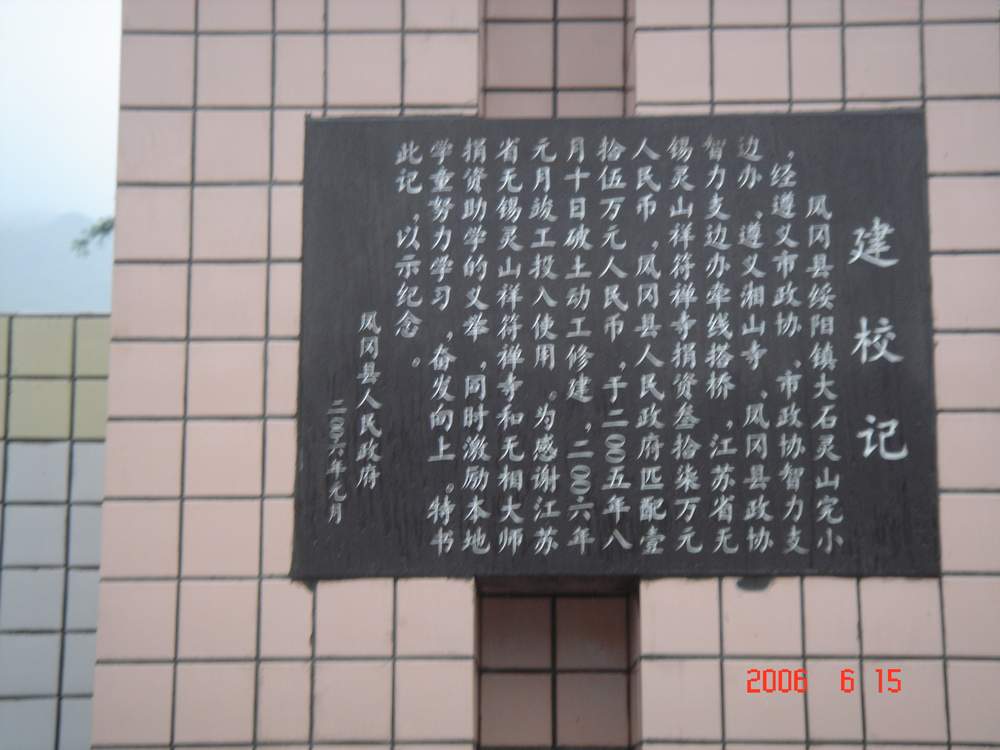 建校记
凤冈县绥阳镇大石灵山完小
，经遵义市政协、市政协智力支
边办、遵义湘山寺、凤冈县政协
智力支边办牵线搭桥，江苏省无
锡灵山祥符禅寺捐资叁拾柒万元
人民币，凤冈县人民政府匹配壹
拾伍万元人民币，于二00五年八
月十日破土动工修建，二00六年
元月竣工投入使用。为感谢江苏
省无锡灵山祥符禅寺和无相大师
捐资助学的义举，同时激励本地
学童努力学习，奋发向上。特书
此记，以示纪念。
凤冈县人民政府
二00六年元月
2006 6 15